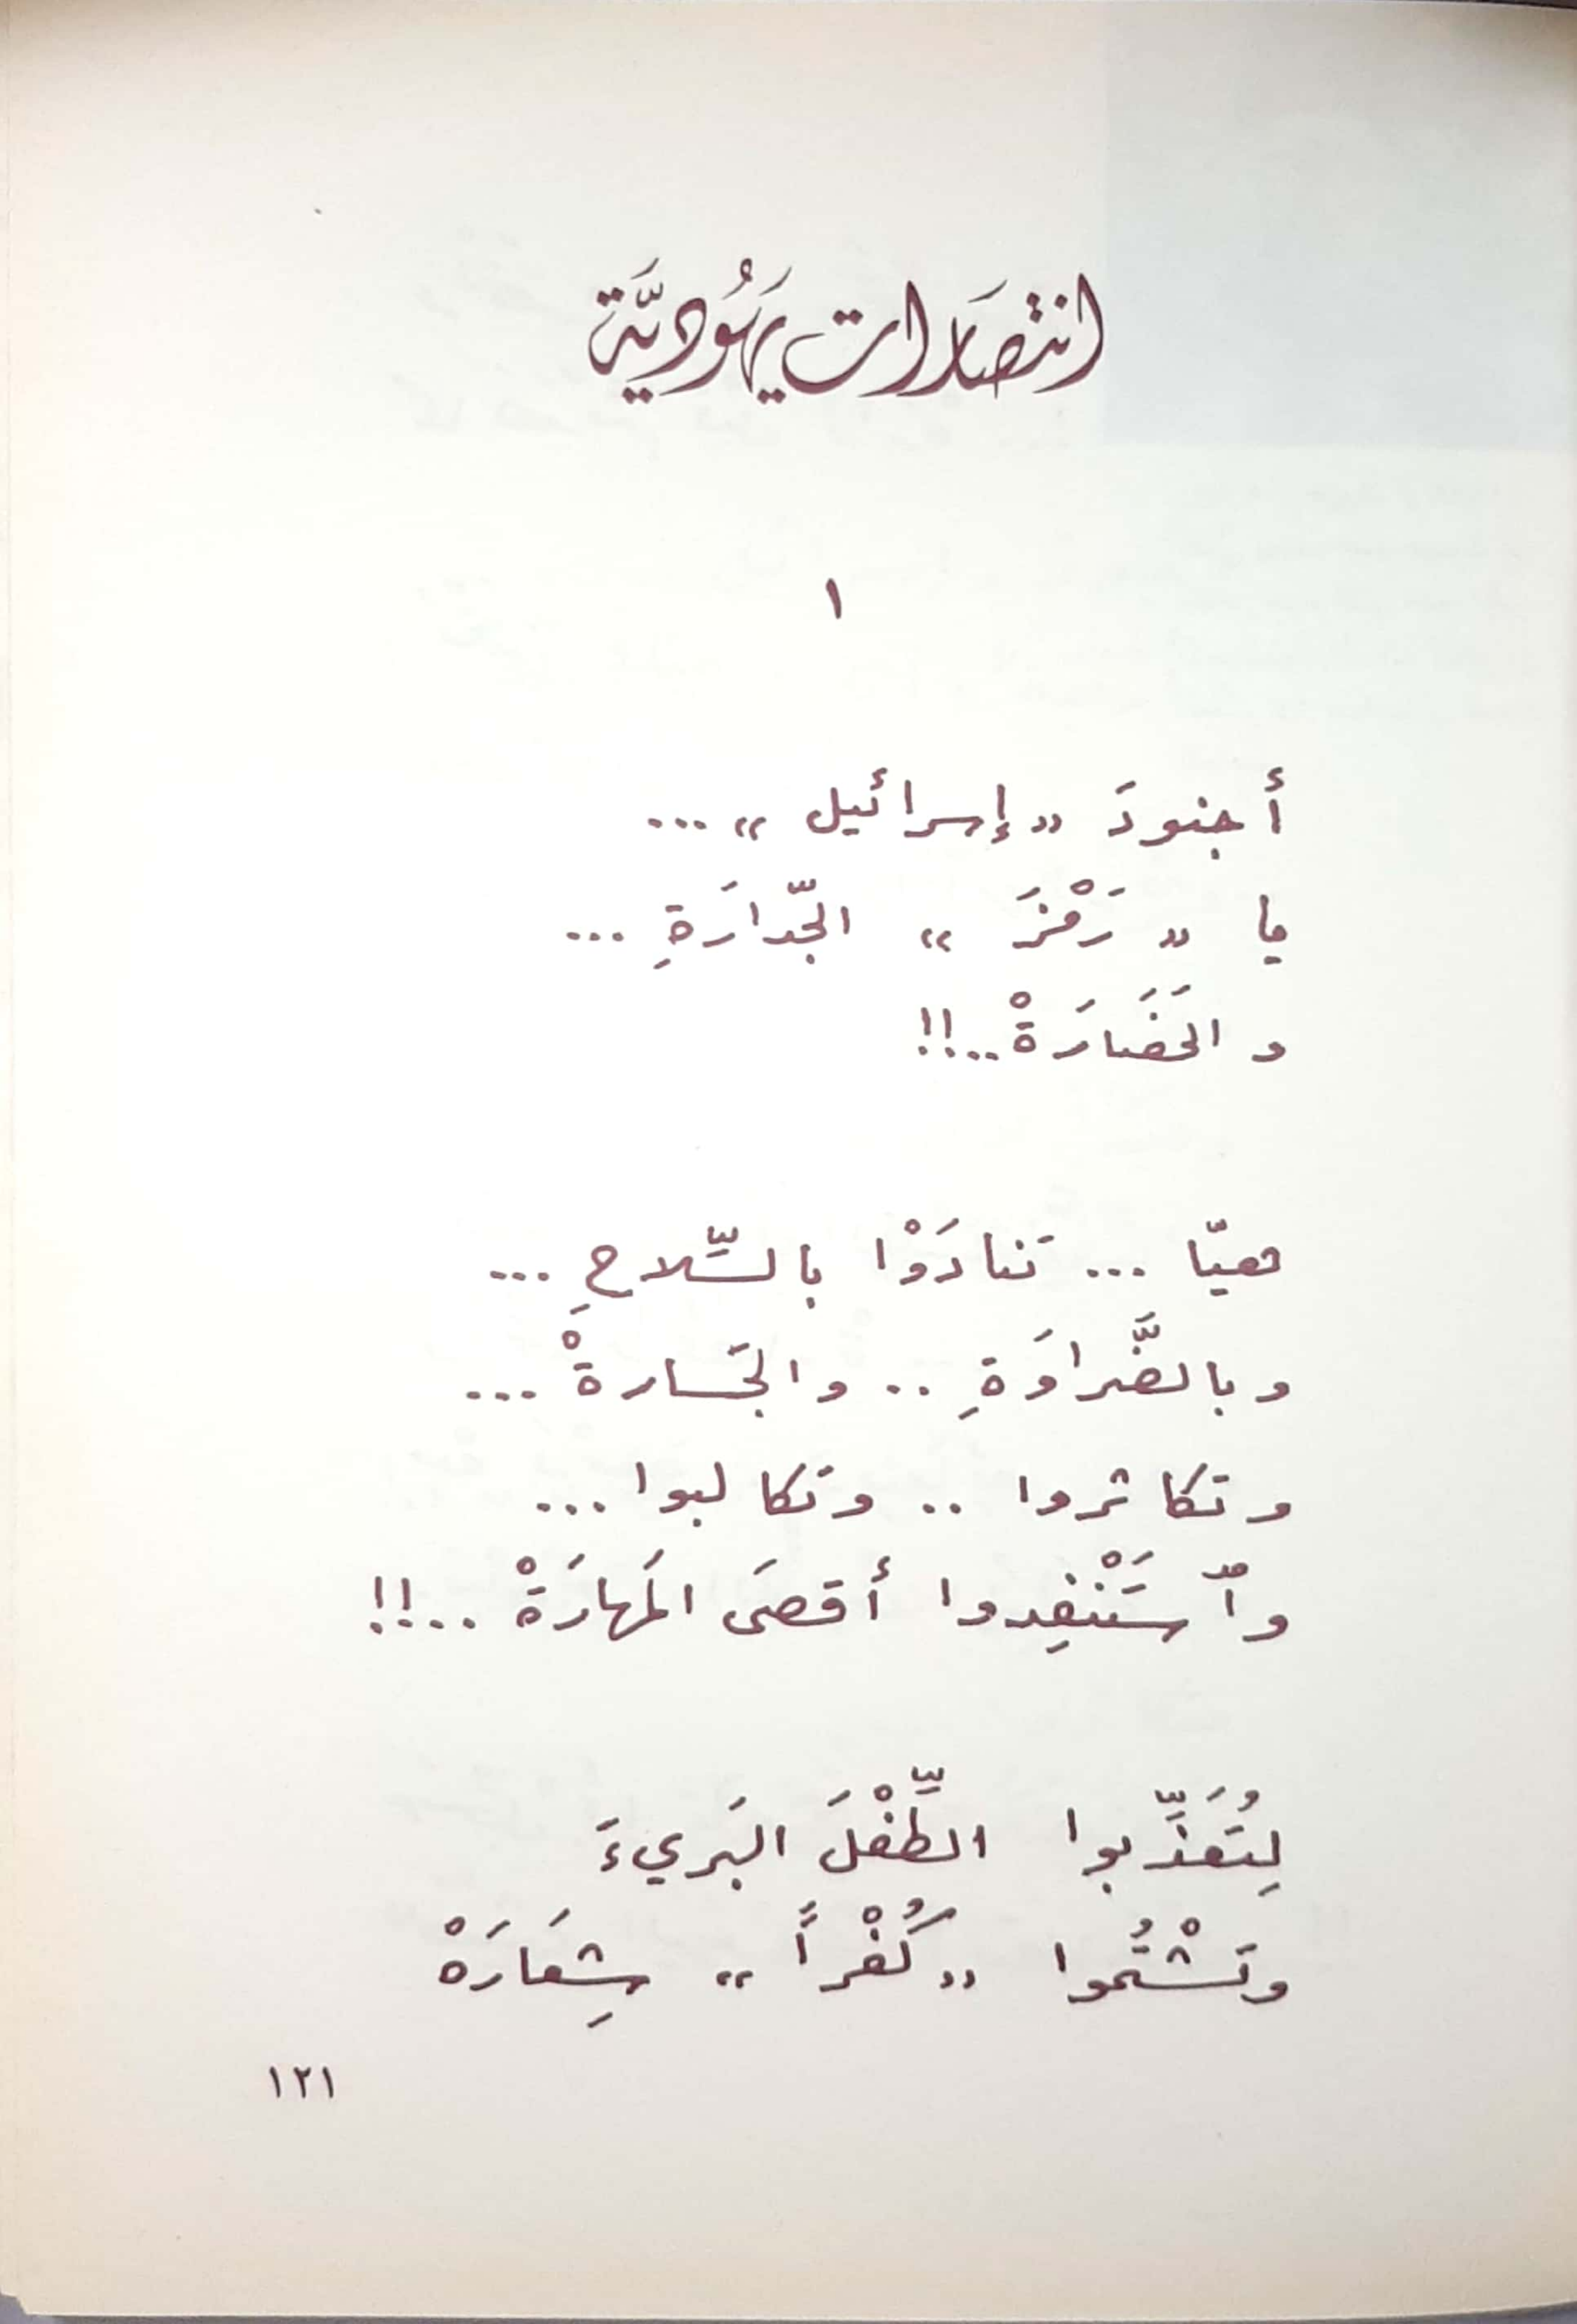 انتصَارات يَهُوديَّة
١
أجنودَ «إسرائيل» ...
يا «رَمْزَ» الجّدارَةِ ...
و الحَضَارَةْ ..!!
هيّا ... تَنادَوْا بالسِّلاحِ ...
وبالضَّراوَةِ .. والجَسارةْ ...
وتكاثروا .. وتكالبوا ...
وٱستَنْفِدوا أقصَى المَهارَةْ ..!!
لِتُعَذِّبوا الطِّفْلَ البَريءَ
وتَشْتُموا «كُفْراً» شِعَارَهْ
١٢١